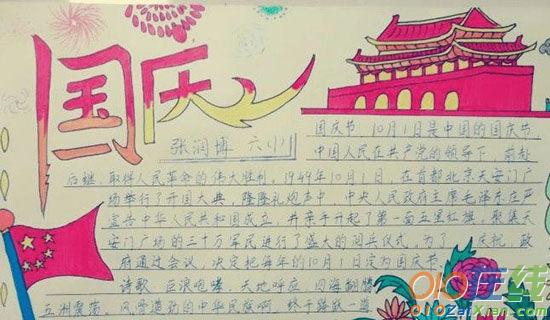 国庆
张润博 六(1)
国庆节 10月1日是中国的国庆节,
中国人民在共产党的领导下,前赴
后继,取得人民革命的伟大胜利,1949年10月1日,在首都北京天安门广
场举行了开国大典,隆隆礼炮声中,中央人民政府主席毛泽东庄严
宣告中华人民共和国成立,并亲手升起了第一面五星红旗,聚集天
安门广场的三十万军民进行了盛大的阅兵仪式,为了 庆祝,政
府通过会议,决定把每年的10月1日定为国庆节。
诗歌:巨浪咆哮,天地呼应,四海翻腾
五洲震荡,风雷激励的中华民族啊,终于踏跃一道
在线
ZaiXian.com